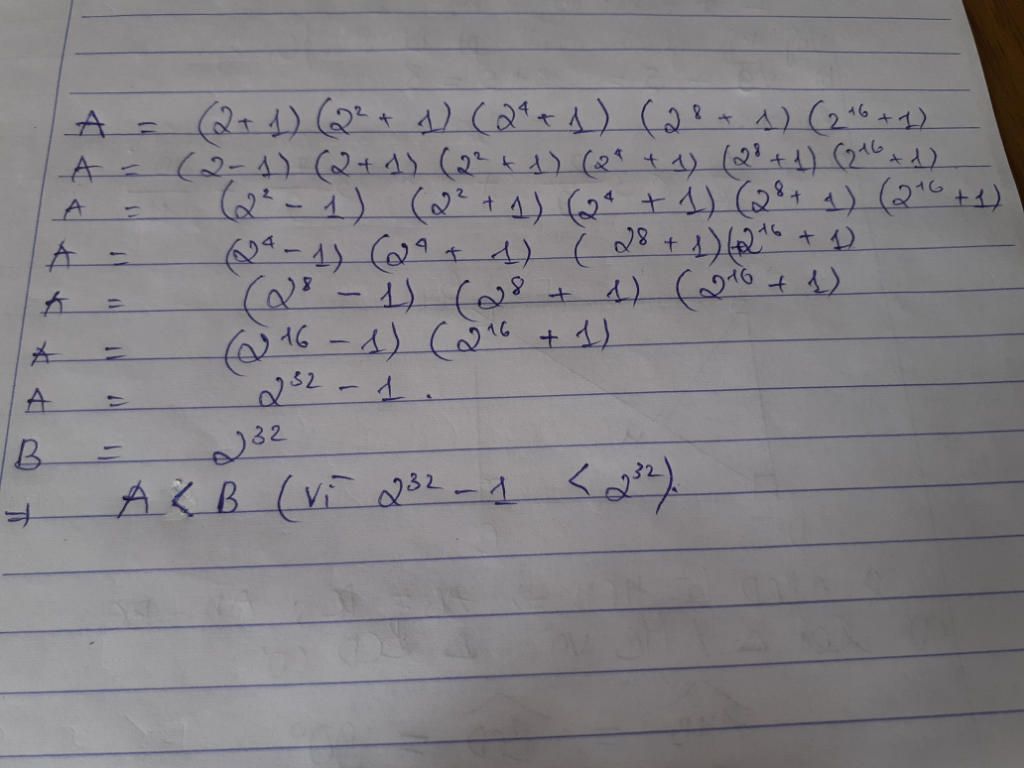 A = (2+1)(2² + 1)(2⁴+1) (2⁸ + 1)(2¹⁶+1)
A = (2-1)(2+1)(2²+1)(2⁴+1)(2⁸+1)(2¹⁶+1)
A = (2²-1) (2²+1)(2⁴+1)(2⁸+1)(2¹⁶+1)
A = (2⁴-1)(2⁴+1) (2⁸+1)(2¹⁶+1)
A = (2⁸-1) (2⁸+1) (2¹⁶+1)
A = (2¹⁶-1) (2¹⁶+1)
A = 2³²-1.
B = 2³²
⇒ A < B (Vì 2³²-1 < 2³²).